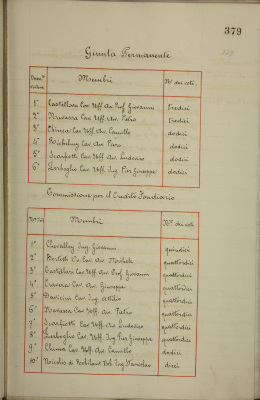 379
Giunta Permanente
Membri
N° dei voti
1° Castellani Cav. Uff. Avv. Prof. Giovanni tredici
2° Navassa Cav. Uff. Avv. Pietro tredici
3° Chiesa Cav. Uff. Avv. Camillo dodici
4° Cav. Avv. Piero dodici
5° Scarfiotti Cav. Uff. Avv. Lodovico dodici
6° Zerboglio Cav. Uff. Ing. Pier Giuseppe dodici
Commissione per il Credito Fondiario
Membri
N° dei voti
1° Chevalley Ing. Giovanni quindici
2° Cav. Avv. Michele quattordici
3° Castellani Cav. Uff. Avv. Prof. Giovanni quattordici
4° Cav. Avv. Giuseppe quattordici
5° Cav. Ing. Attilio quattordici
6° Navassa Cav. Uff. Avv. Pietro quattordici
7° Scarfiotti Cav. Uff. Avv. Lodovico quattordici
8° Zerboglio Cav. Uff. Ing. Pier Giuseppe quattordici
9° Chiesa Cav. Uff. Avv. Camillo dodici
10° Nicolis di Robilant Nob. Ing. Stanislao dieci